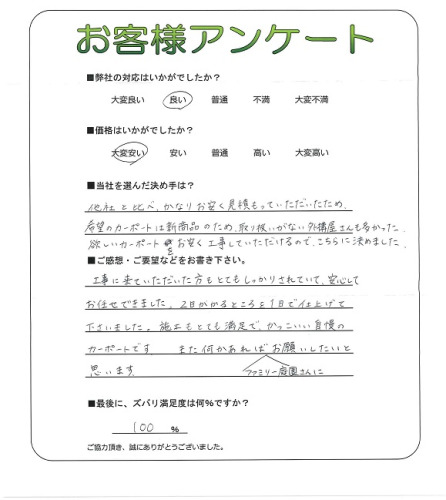 お客様アンケート
■弊社の対応はいかがでしたか？
大変良い 良い 普通 不満 大変不満
■価格はいかがでしたか？
大変安い 安い 普通 高い 大変高い
■当社を選んだ決め手は？
他社と比べ、かなりお安く見積もっていただいたため。
希望のカーポートは新商品のため、取り扱いがない外構屋さんも多かった。
欲しいカーポートをお安く工事していただけるので、こちらに決めました。
■ご感想・ご要望などをお書き下さい。
工事に来ていただいた方もとてもしっかりされていて、安心して
お任せできました。2日かかるところを1日で仕上げて
下さいました。施工もとても満足で、かっこいい自慢の
カーポートです。 また何かあればお願いしたいと
ファミリー庭園さんに
思います。
■最後に、ズバリ満足度は何％ですか？
100 ％
ご協力頂き、誠にありがとうございました。